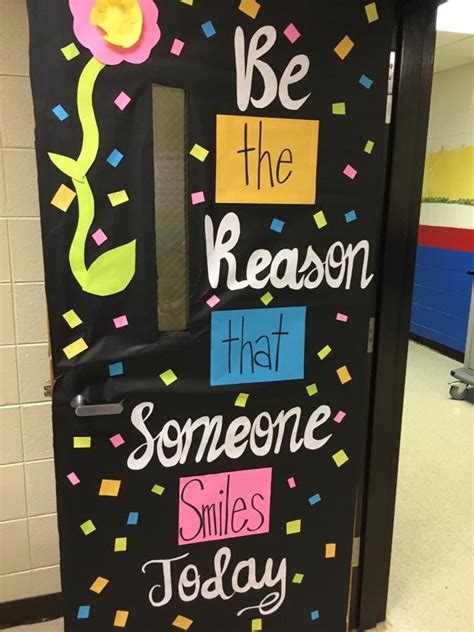 Be
the
Reason
that
Someone
Smiles
Today